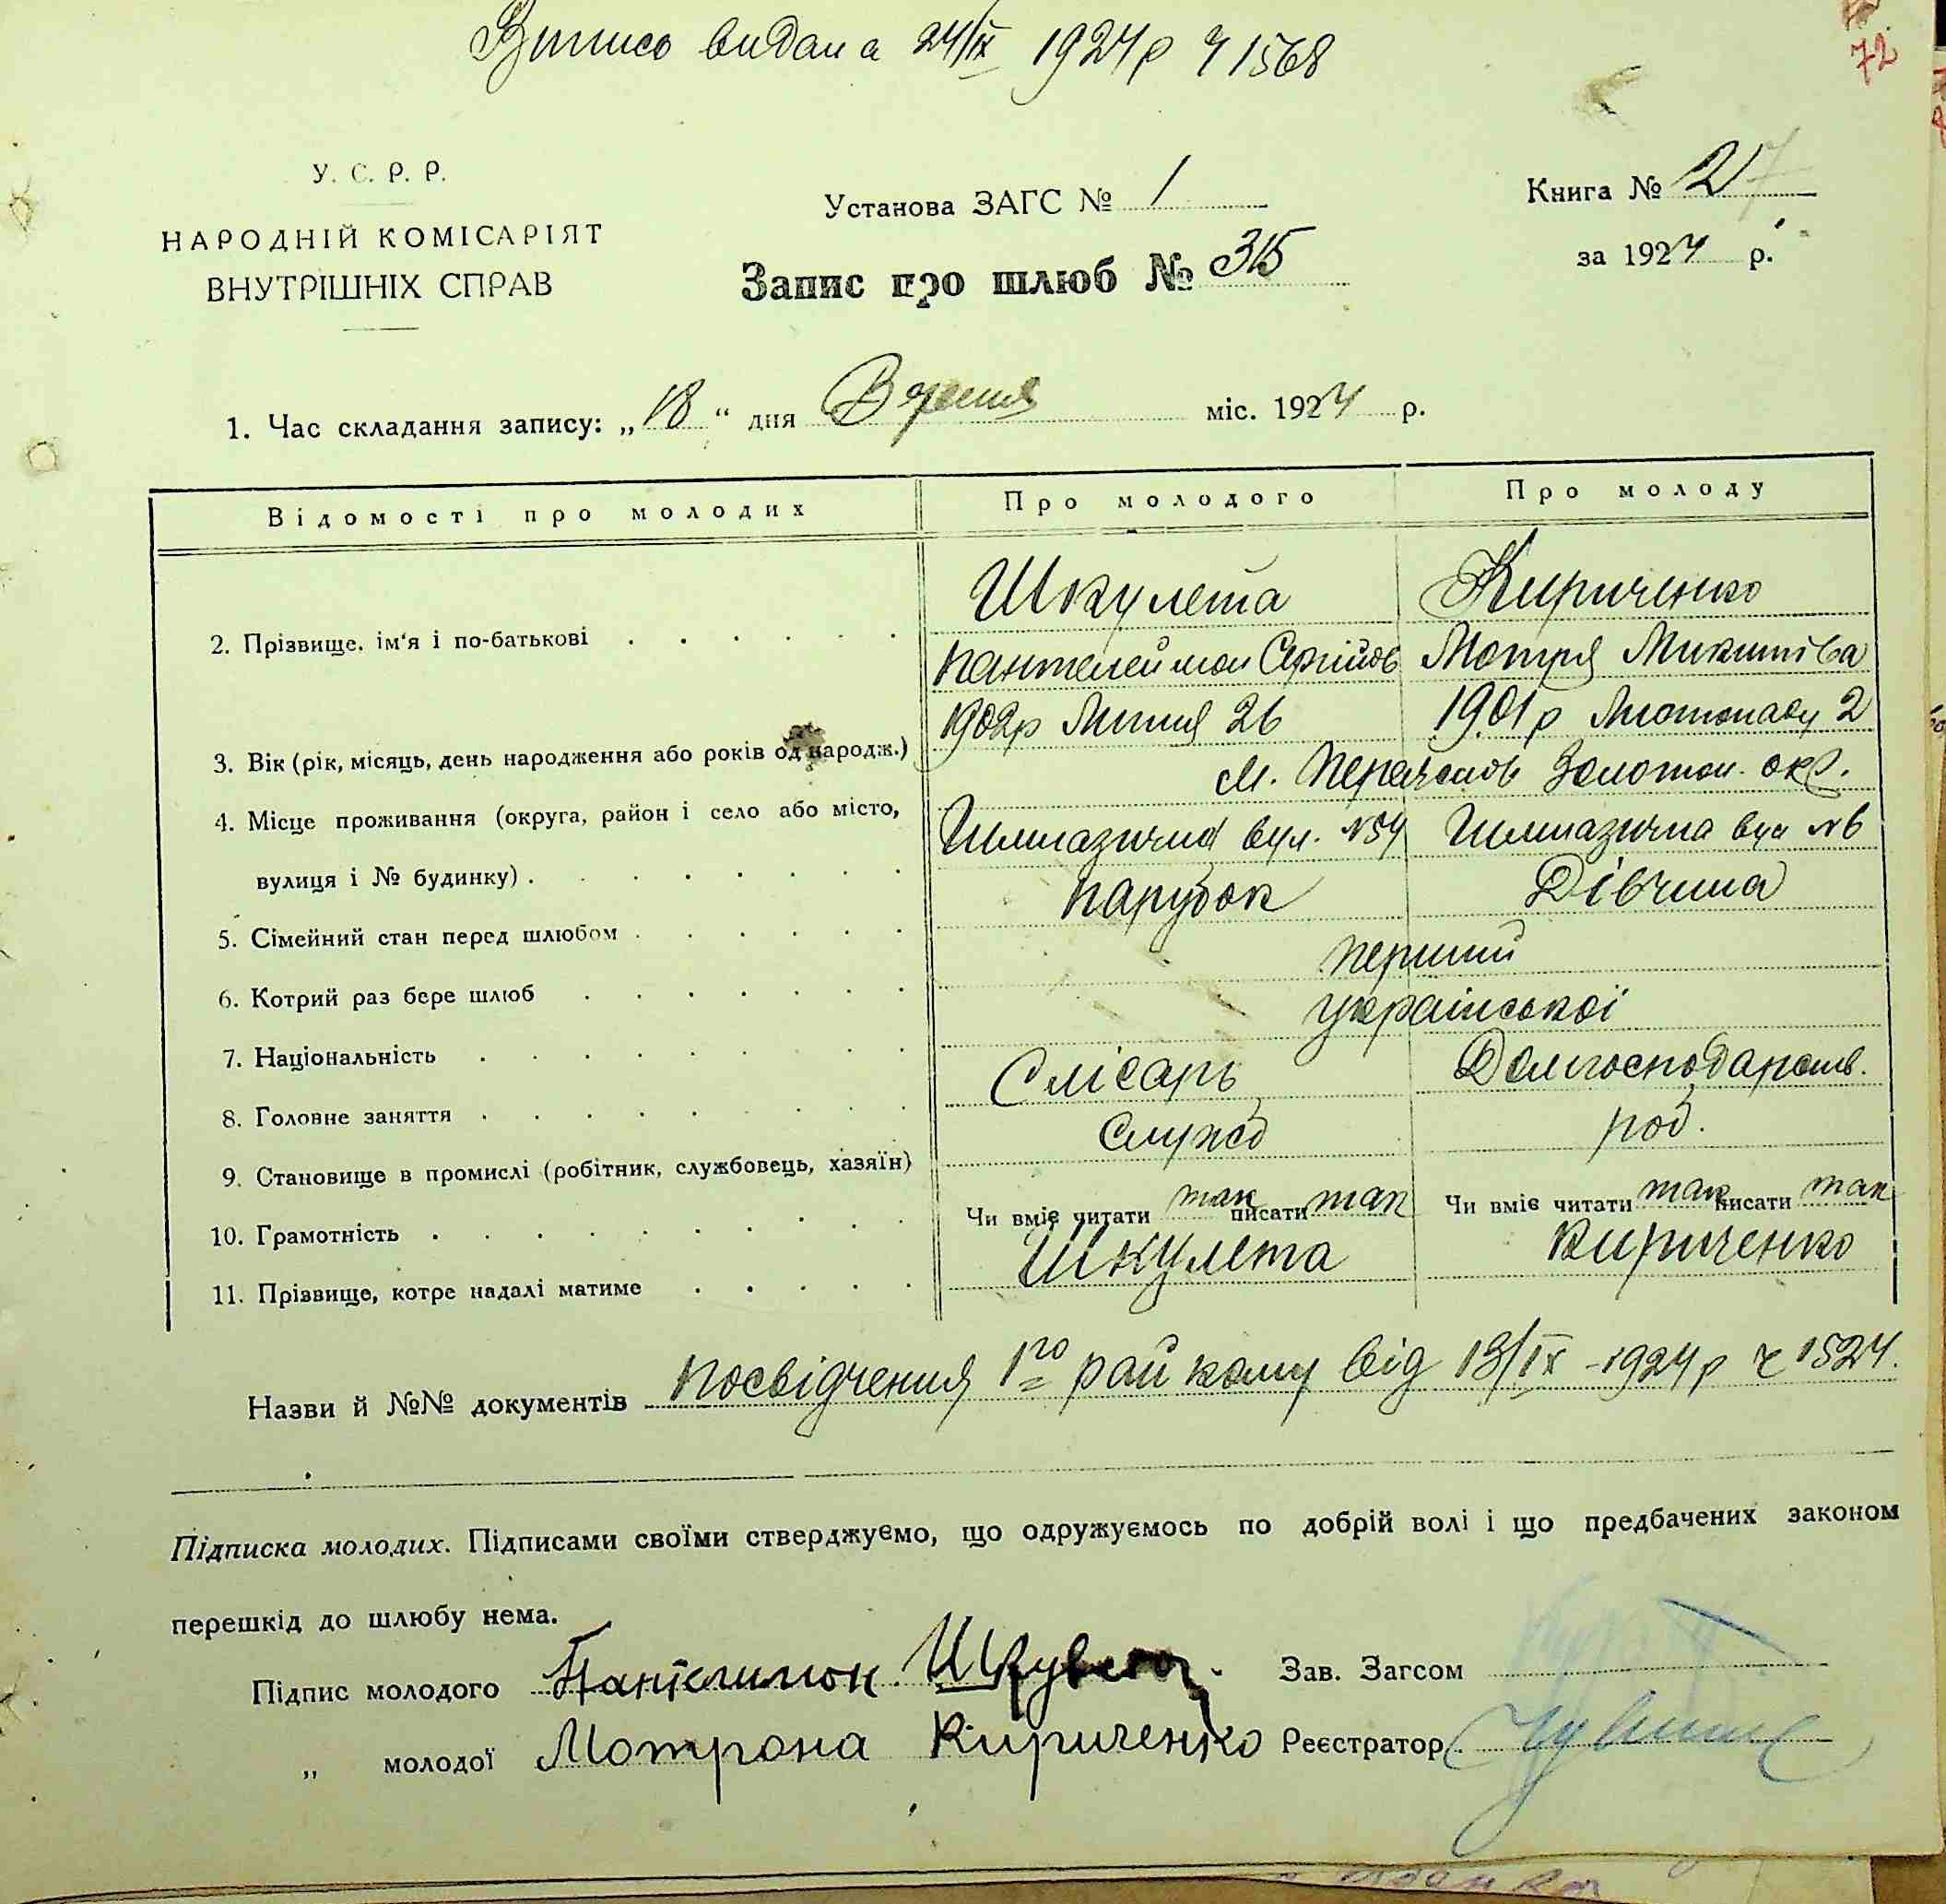 Випись видана 24/IX 1924 р ч 1568
72
У. С. Р. Р.
НАРОДНІЙ КОМІСАРІЯТ
ВНУТРІШНІХ СПРАВ
Установа ЗАГС № 1
Запис про шлюб № 315
Книга №
за 1924 р.
1. Час складання запису: „18“ дня Вересня міс. 1924 р.
Відомості про молодих Про молодого Про молоду
2. Прізвище, ім'я і по-батькові Шкулета Кириченко
Пантелеймон Сергійов Мотря Микитівa
3. Вік (рік, місяць, день народження або років од народж.) 1902р Липня 26 1901р Листопаду 2
м. Золотон. окр.
4. Місце проживання (округа, район і село або місто,
вулиця і № будинку) Гимназична вул. №54 Гимназична вул №6
5. Сімейний стан перед шлюбом парубок Дівчина
6. Котрий раз бере шлюб перший
7. Національність української
8. Головне заняття Слісарь Домгосподарств.
9. Становище в промислі (робітник, службовець, хазяїн) служб
10. Грамотність Чи вміє читати так писати так Чи вміє читати так писати так
11. Прізвище, котре надалі матиме Шкулета Кириченко
Назви й №№ документів посвідчення 1го райкому від 13/IX-1924р ч 1524.
Підписка молодих. Підписами своїми стверджуємо, що одружуємось по добрій волі і що предбачених законом
перешкід до шлюбу нема.
Підпис молодого Зав. Загсом
„ молодої Мотрона Кириченко Реєстратор